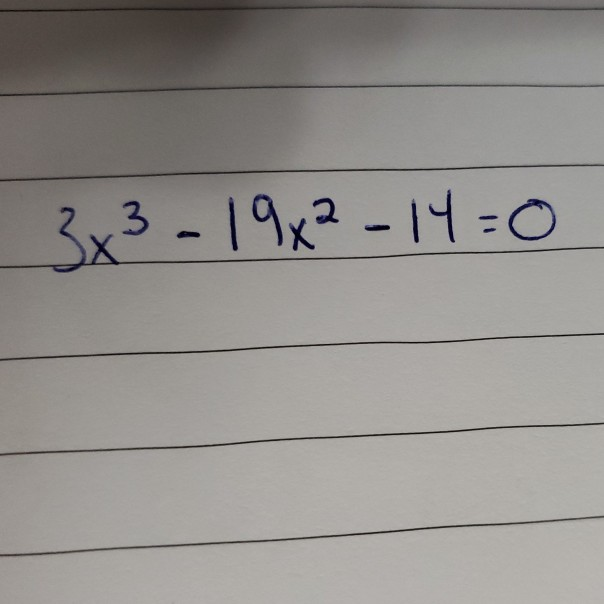 3x³ - 19x² - 14 = 0